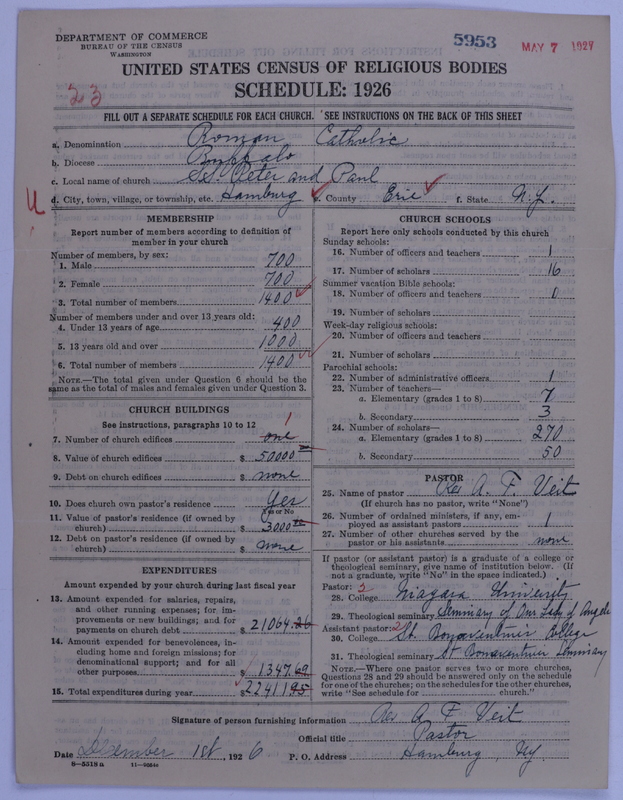 DEPARTMENT OF COMMERCE
BUREAU OF THE CENSUS
WASHINGTON
5953
MAY 7 1927
UNITED STATES CENSUS OF RELIGIOUS BODIES
SCHEDULE: 1926
23
FILL OUT A SEPARATE SCHEDULE FOR EACH CHURCH. SEE INSTRUCTIONS ON THE BACK OF THIS SHEET
a. Denomination Roman Catholic
b. Diocese Buffalo
c. Local name of church SS. Peter and Paul
d. City, town, village, or township, etc. Hamburg e. County Erie f. State N.Y.
U
MEMBERSHIP
Report number of members according to definition of
member in your church
Number of members, by sex:
1. Male 700
2. Female 700
3. Total number of members 1400
Number of members under and over 13 years old:
4. Under 13 years of age 400
5. 13 years old and over 1000
6. Total number of members 1400
NOTE.—The total given under Question 6 should be the
same as the total of males and females given under Question 3.
CHURCH BUILDINGS
See instructions, paragraphs 10 to 12
1
7. Number of church edifices one
8. Value of church edifices $ 50000
9. Debt on church edifices $ none
10. Does church own pastor's residence Yes
Yes or No
11. Value of pastor's residence (if owned by
church) $ 3000
12. Debt on pastor's residence (if owned by
church) $ none
EXPENDITURES
Amount expended by your church during last fiscal year
13. Amount expended for salaries, repairs,
and other running expenses; for im-
provements or new buildings; and for
payments on church debt $ 21064.26
14. Amount expended for benevolences, in-
cluding home and foreign missions; for
denominational support; and for all
other purposes $ 1347.69
15. Total expenditures during year $ 22411.95
CHURCH SCHOOLS
Report here only schools conducted by this church
Sunday schools:
16. Number of officers and teachers 1
17. Number of scholars 16
Summer vacation Bible schools:
18. Number of officers and teachers 0
19. Number of scholars
Week-day religious schools:
20. Number of officers and teachers
21. Number of scholars
Parochial schools:
22. Number of administrative officers 1
23. Number of teachers—
a. Elementary (grades 1 to 8) 7
b. Secondary 3
24. Number of scholars—
a. Elementary (grades 1 to 8) 270
b. Secondary 50
PASTOR
25. Name of pastor Rev A. F. Veit
(If church has no pastor, write "None")
26. Number of ordained ministers, if any, em-
ployed as assistant pastors 1
27. Number of other churches served by the
pastor or his assistants none
If pastor (or assistant pastor) is a graduate of a college or
theological seminary, give name of institution below. (If
not a graduate, write "No" in the space indicated.)
Pastor: 3
28. College Niagara University
29. Theological seminary Seminary of Our Lady of Angels
Assistant pastor:
30. College St. Bonaventure College
31. Theological seminary St Bonaventure Seminary
NOTE.—Where one pastor serves two or more churches,
Questions 28 and 29 should be answered only on the schedule
for one of the churches; on the schedules for the other churches,
write "See schedule for church."
Signature of person furnishing information Rev A F Veit
Official title Pastor
Date December 1st, 1926 P. O. Address Hamburg, NY
8—5518 a